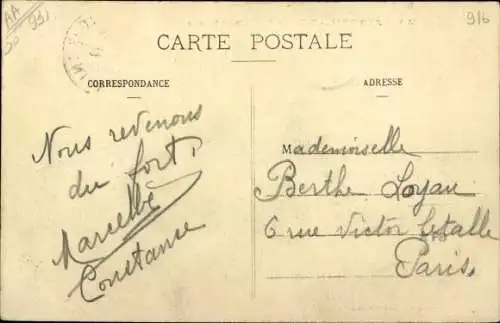 AA
916
CARTE POSTALE
CORRESPONDANCE
ADRESSE
Nous revenons
du fort,
Marcelle
Constance
Mademoiselle
Berthe Loyau
6 rue Victor Letalle
Paris